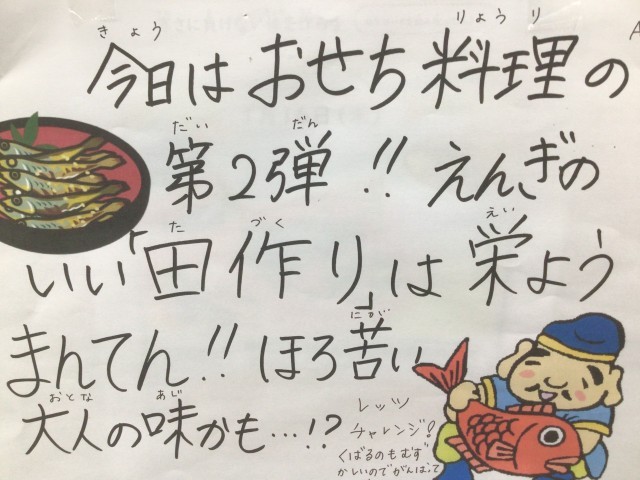 きょう りょうり
今日はおせち料理の
だい だん
第2弾!! えんぎの
た づく えい
いい「田作り」は栄よう
にが
まんてん!! ほろ苦い
おとな あじ
大人の味かも…!?
レッツ
チャレンジ!
くばるのもむず
かしいのでがんばって